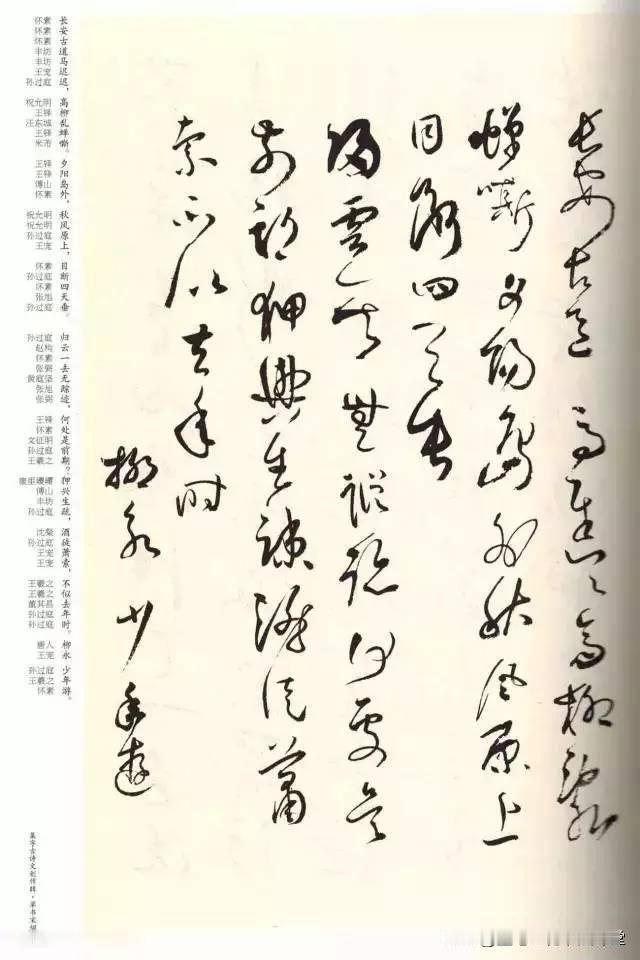 長安古道馬遲〻高柳亂
蟬嘶夕陽島外秋風原上
目斷四天垂
歸雲一去無蹤跡何處是
前期狎興生疎酒徒蕭
索不似去年時
柳永少年遊
长安古道马迟迟，
高柳乱蝉嘶。
夕阳岛外，
秋风原上，
目断四天垂。
归云一去无踪迹，
何处是前期？
狎兴生疏，
酒徒萧索，
不似去年时。
柳永
少年游。
怀素 怀素 怀素 丰坊 丰坊 王宠 孙过庭
祝允明 王铎 王铎 米芾
王铎 王铎 傅山 怀素
祝允明 祝允明 孙过庭 王宠
怀素 孙过庭 怀素 张旭 孙过庭
孙过庭 赵构 怀素 张弼 黄庭坚 张旭 张弼
王铎 怀素 文征明 孙过庭 王羲之
康里巎巎 傅山 丰坊 孙过庭
沈粲 孙过庭 王宠 王宠
王羲之 王羲之 董其昌 孙过庭 孙过庭
唐人 王宠
孙过庭 王羲之 怀素
集字古诗文创作辑·草书宋词